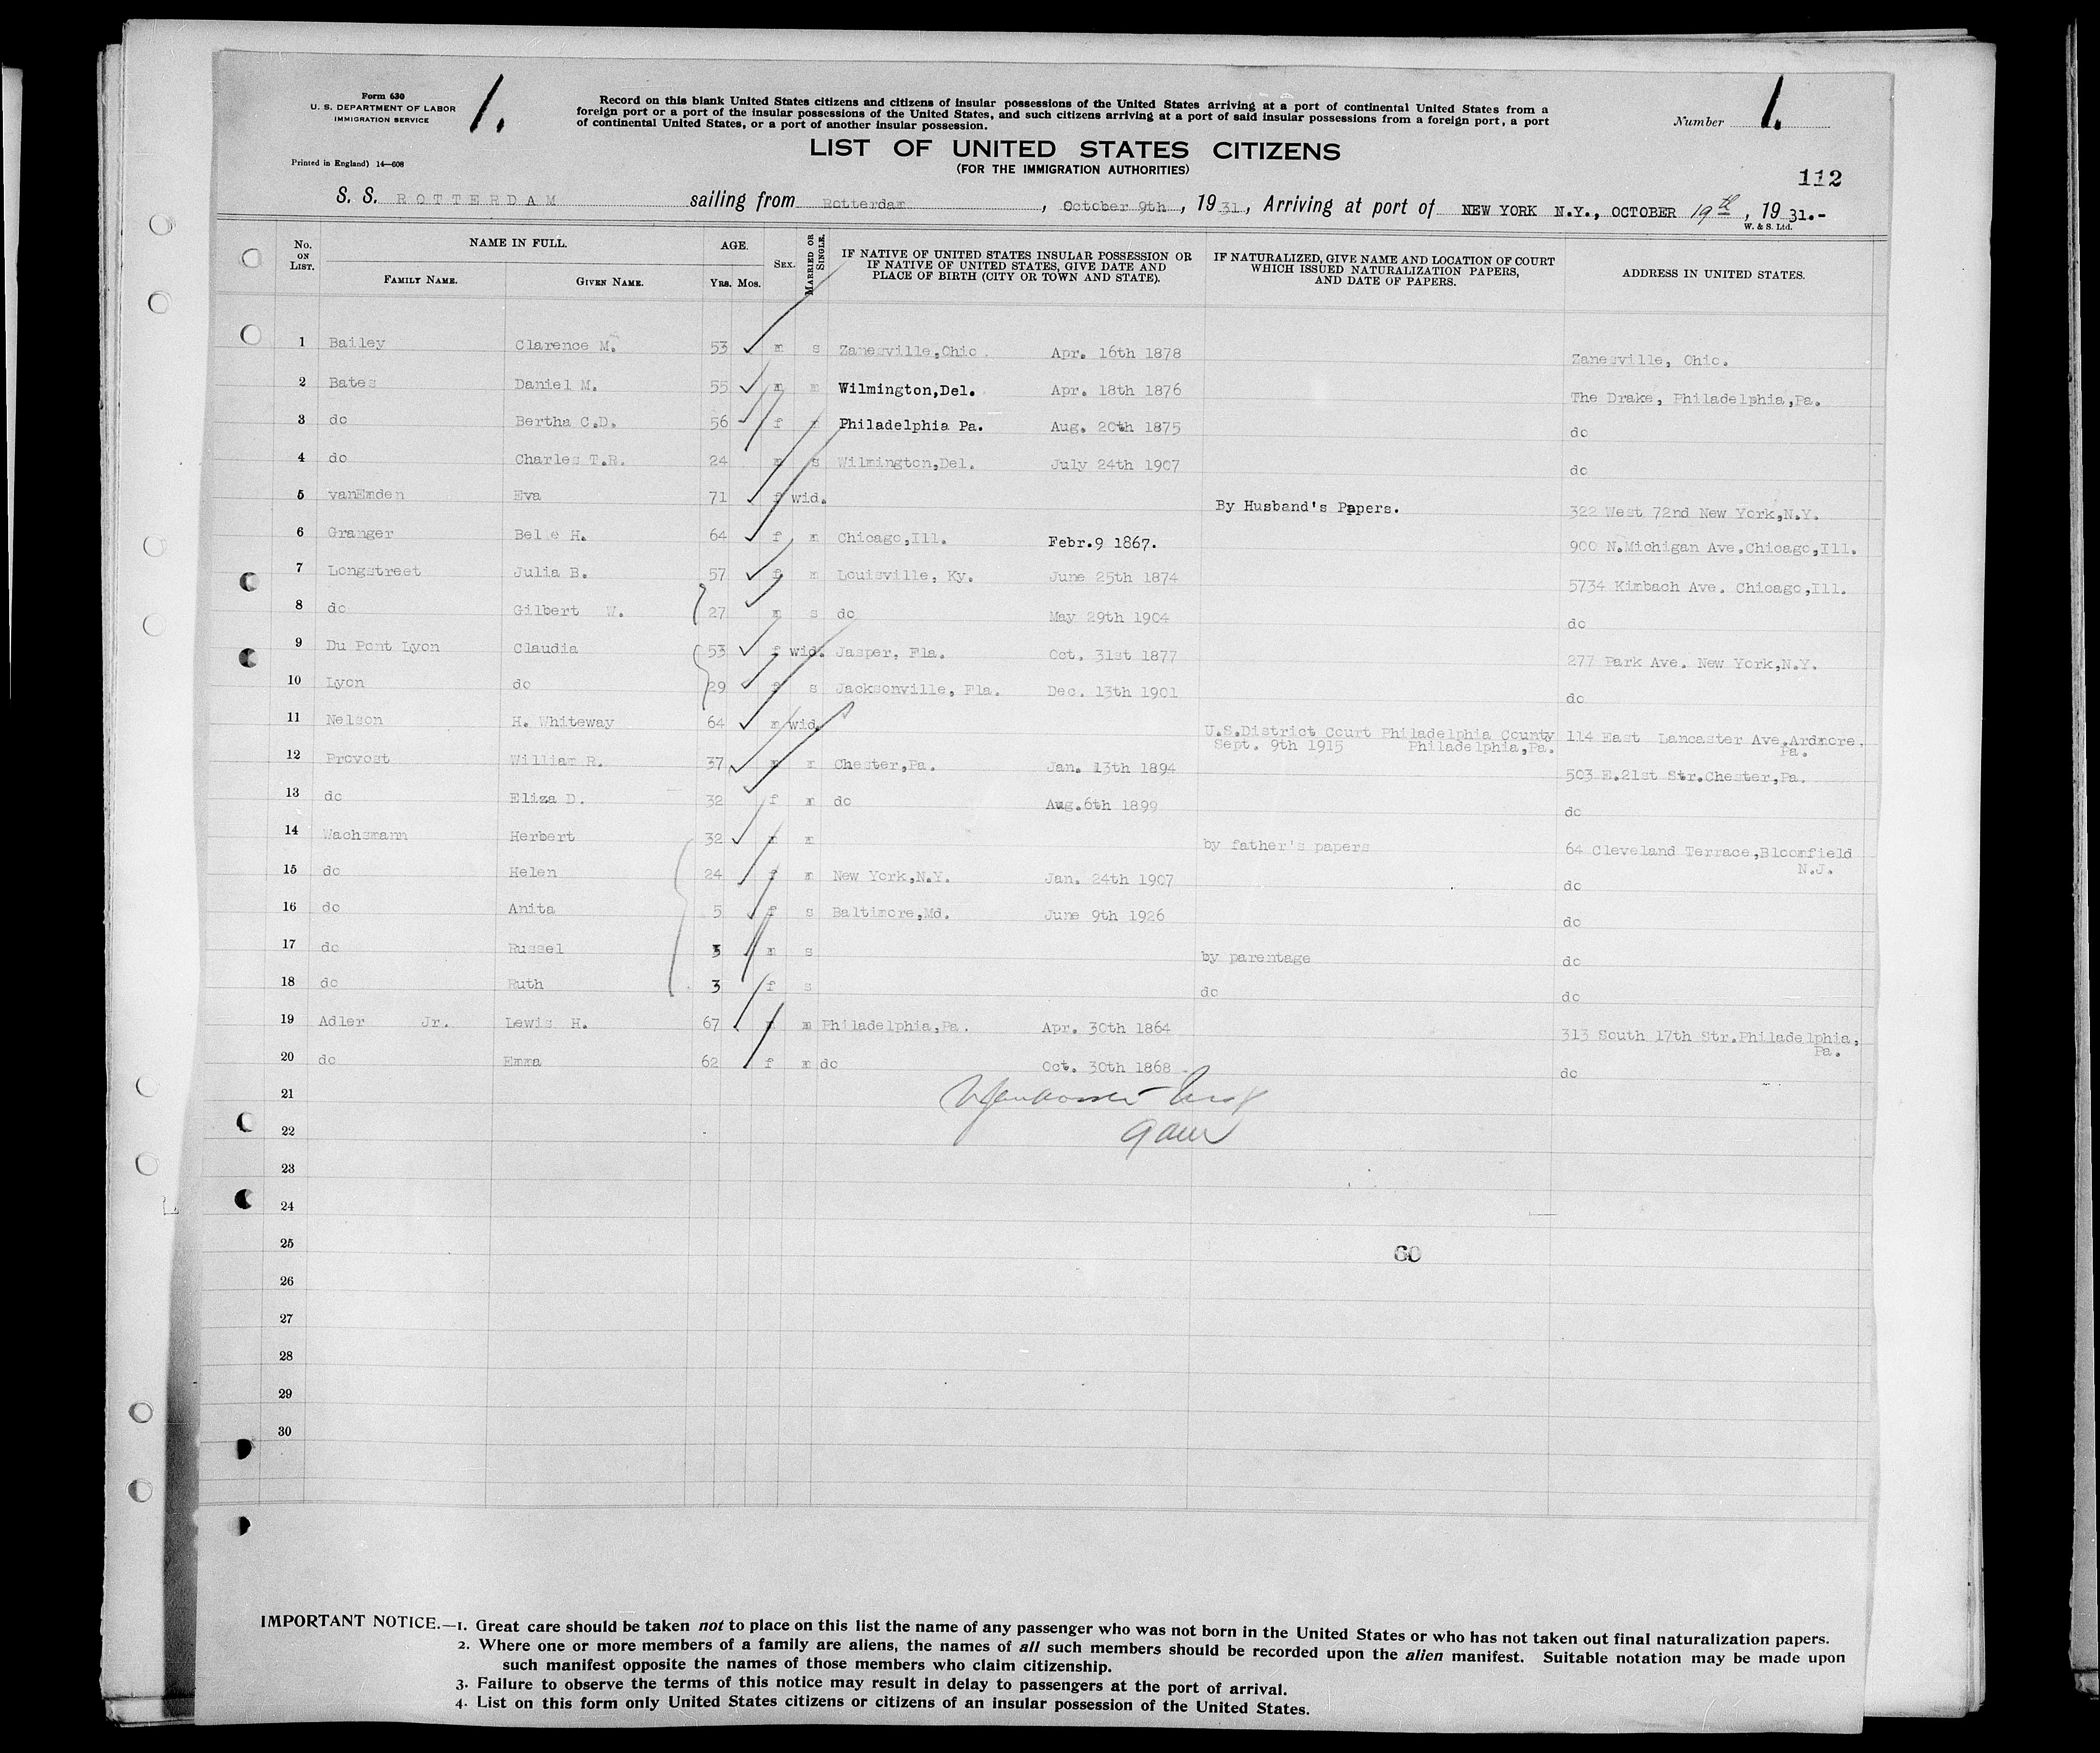 Form 630
U. S. DEPARTMENT OF LABOR
IMMIGRATION SERVICE
Printed in England) 14—608
1.
Record on this blank United States citizens and citizens of insular possessions of the United States arriving at a port of continental United States from a
foreign port or a port of the insular possessions of the United States, and such citizens arriving at a port of said insular possessions from a foreign port, a port
of continental United States, or a port of another insular possession.
Number 1.
LIST OF UNITED STATES CITIZENS
(FOR THE IMMIGRATION AUTHORITIES)
112
S. S. ROTTERDAM sailing from Rotterdam, October 9th, 1931, Arriving at port of NEW YORK N.Y., OCTOBER 19th, 1931.-
W. & S. Ltd.
No. ON LIST. NAME IN FULL. FAMILY NAME. GIVEN NAME. AGE. YRS. MOS. SEX. MARRIED OR SINGLE. IF NATIVE OF UNITED STATES INSULAR POSSESSION OR IF NATIVE OF UNITED STATES, GIVE DATE AND PLACE OF BIRTH (CITY OR TOWN AND STATE). IF NATURALIZED, GIVE NAME AND LOCATION OF COURT WHICH ISSUED NATURALIZATION PAPERS, AND DATE OF PAPERS. ADDRESS IN UNITED STATES.
1 Bailey Clarence M. 53 m s Zanesville,Ohio. Apr. 16th 1878 Zanesville, Ohio.
2 Bates Daniel M. 55 m m Wilmington,Del. Apr. 18th 1876 The Drake, Philadelphia,Pa.
3 do Bertha C.D. 56 f Philadelphia Pa. Aug. 20th 1875 do
4 do Charles T.R. 24 m s Wilmington,Del. July 24th 1907 do
5 vanEmden Eva 71 f wid. By Husband's Papers. 322 West 72nd New York,N.Y.
6 Granger Belle H. 64 f m Chicago,Ill. Febr.9 1867. 900 N.Michigan Ave.Chicago,Ill.
7 Longstreet Julia B. 57 f m Louisville, Ky. June 25th 1874 5734 Kimbach Ave. Chicago,Ill.
8 do Gilbert W. 27 m s do May 29th 1904 do
9 Du Pont Lyon Claudia 53 f wid. Jasper, Fla. Oct. 31st 1877 277 Park Ave. New York,N.Y.
10 Lyon do 29 f s Jacksonville, Fla. Dec. 13th 1901 do
11 Nelson H. Whiteway 64 m wid. U.S.District Court Philadelphia County 114 East Lancaster Ave.Ardmore,
Sept. 9th 1915 Philadelphia,Pa. Pa.
12 Provost William R. 37 m m Chester,Pa. Jan. 13th 1894 503 E.21st Str.Chester,Pa.
13 do Eliza D. 32 f m do Aug.6th 1899 do
14 Wachsmann Herbert 32 m m by father's papers 64 Cleveland Terrace,Bloomfield
N.J.
15 do Helen 24 f m New York,N.Y. Jan. 24th 1907 do
16 do Anita 5 f s Baltimore,Md. June 9th 1926 do
17 do Russel 3 m s by parentage do
18 do Ruth 3 f s do do
19 Adler Jr. Lewis H. 67 m m Philadelphia,Pa. Apr. 30th 1864 313 South 17th Str.Philadelphia,
Pa.
20 do Emma 62 f m do Oct. 30th 1868 do
21
22
23
24
25
60
26
27
28
29
30
IMPORTANT NOTICE.—1. Great care should be taken not to place on this list the name of any passenger who was not born in the United States or who has not taken out final naturalization papers.
2. Where one or more members of a family are aliens, the names of all such members should be recorded upon the alien manifest. Suitable notation may be made upon
such manifest opposite the names of those members who claim citizenship.
3. Failure to observe the terms of this notice may result in delay to passengers at the port of arrival.
4. List on this form only United States citizens or citizens of an insular possession of the United States.